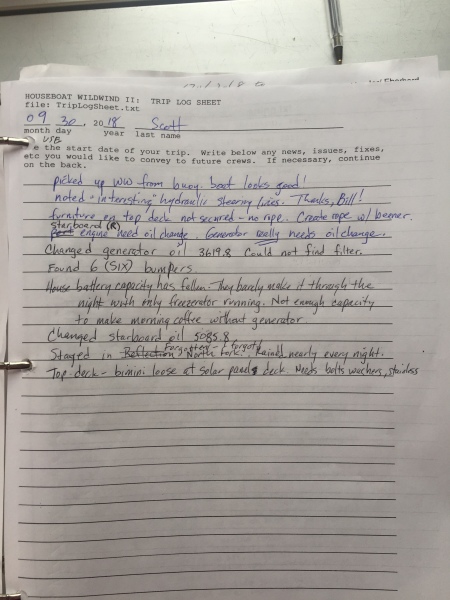 HOUSEBOAT WILDWIND II: TRIP LOG SHEET
file: TripLogSheet.txt
09 30, 2018 Scott
month day year last name
USE
e the start date of your trip. Write below any news, issues, fixes,
etc you would like to convey to future crews. If necessary, continue
on the back.
picked up WW from buoy. boat looks good!
noted "interesting" hydraulic steering lines. Thanks, Bill!
furniture on top deck not secured - no rope. Create rope w/ beener.
Starboard (R)
engine need oil change. Generator really needs oil change.
Changed generator oil 3619.8 Could not find filter.
Found 6 (SIX) bumpers
House battery capacity has fallen. They barely make it through the
night with only freezerator running. Not enough capacity
to make morning coffee without generator
Changed starboard oil 5085.8
Forgotten - I forgot!
Stayed in Reflection North Fork. Rained nearly every night.
Top deck - bimini loose at solar panel deck. Needs bolts washers, stainless